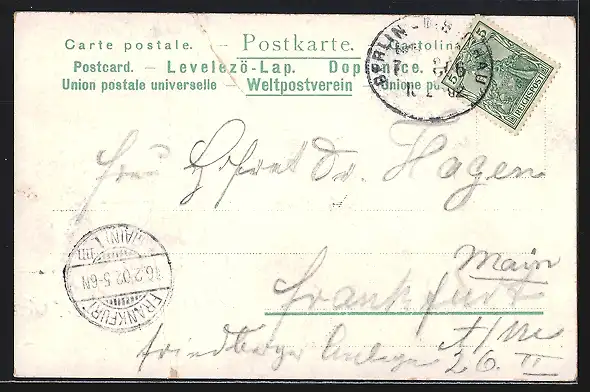 Carte postale. — Postkarte. — Cartolina
Postcard. — Levelező-Lap. Dopisnice.
Union postale universelle Weltpostverein — Unione po
BERLIN
5
REICHSPOST
Frau Hofrat Dr. Hagen
Main
Frankfurt
a/M
Friedberger Anlage 26. II
FRANKFURT (MAIN) 1
16.2.02. 5-6N